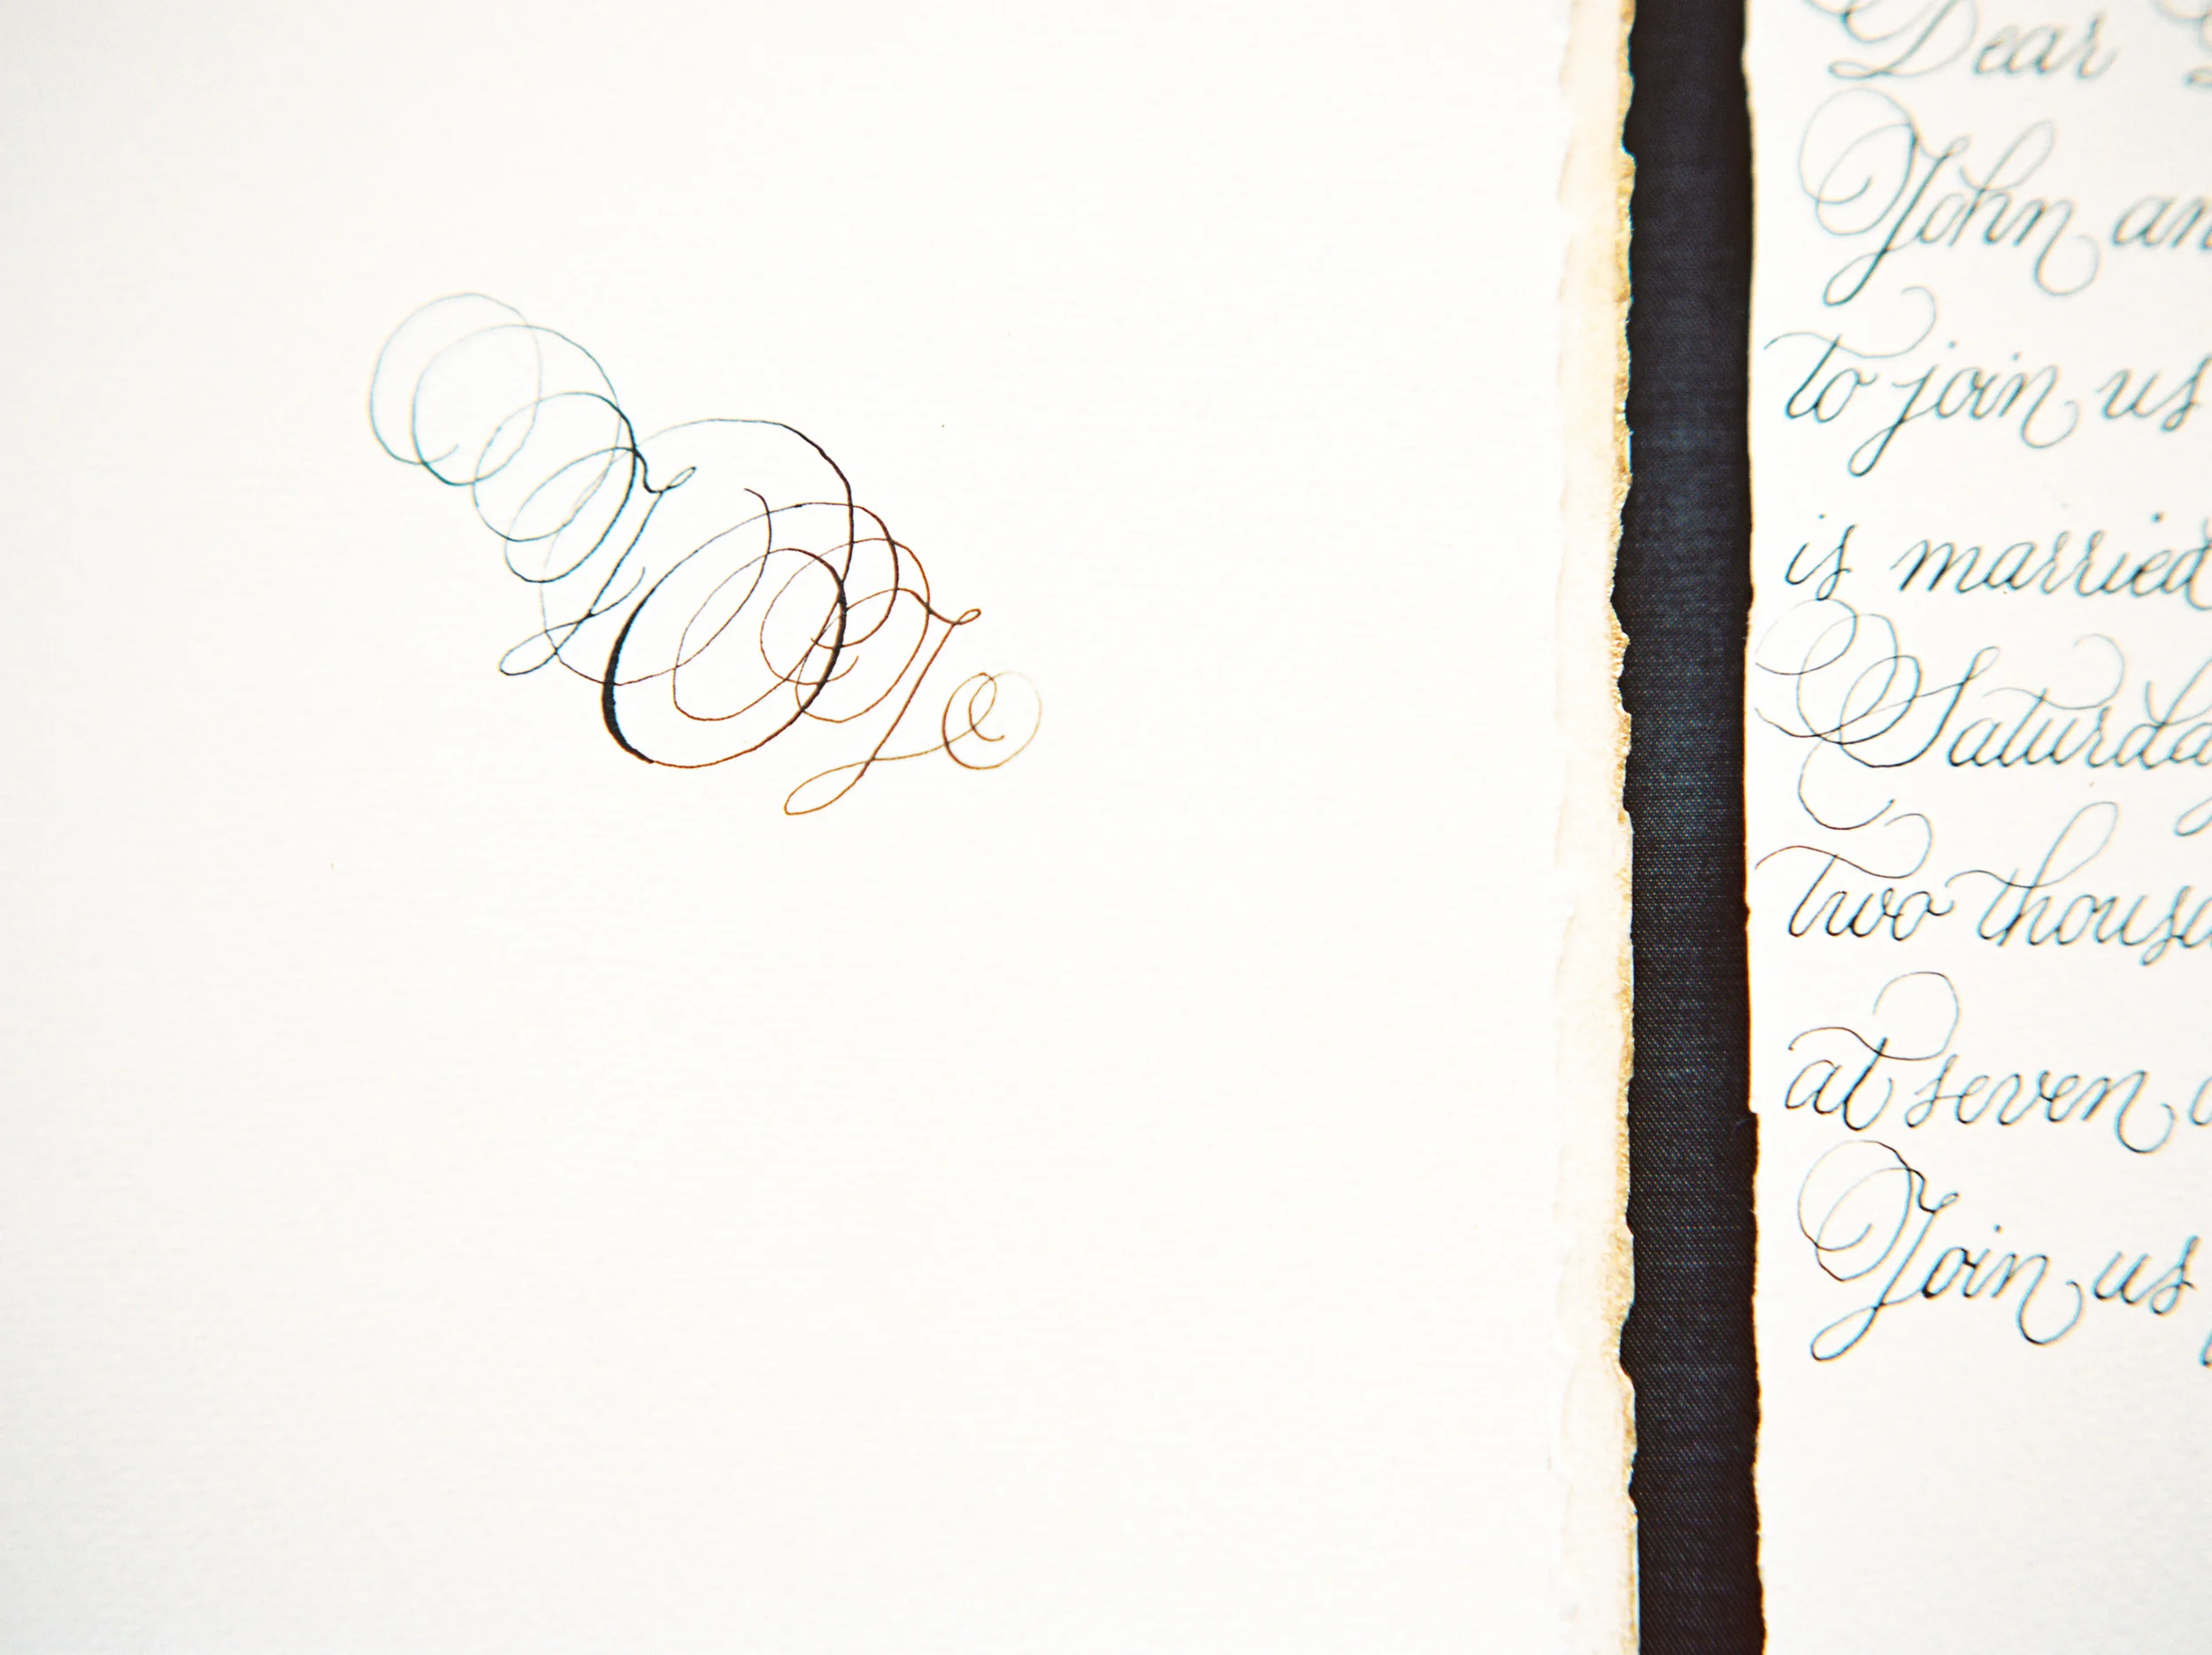 J O J
Dear
John an
to join us
is married
Saturday
two thousa
at seven o
Join us